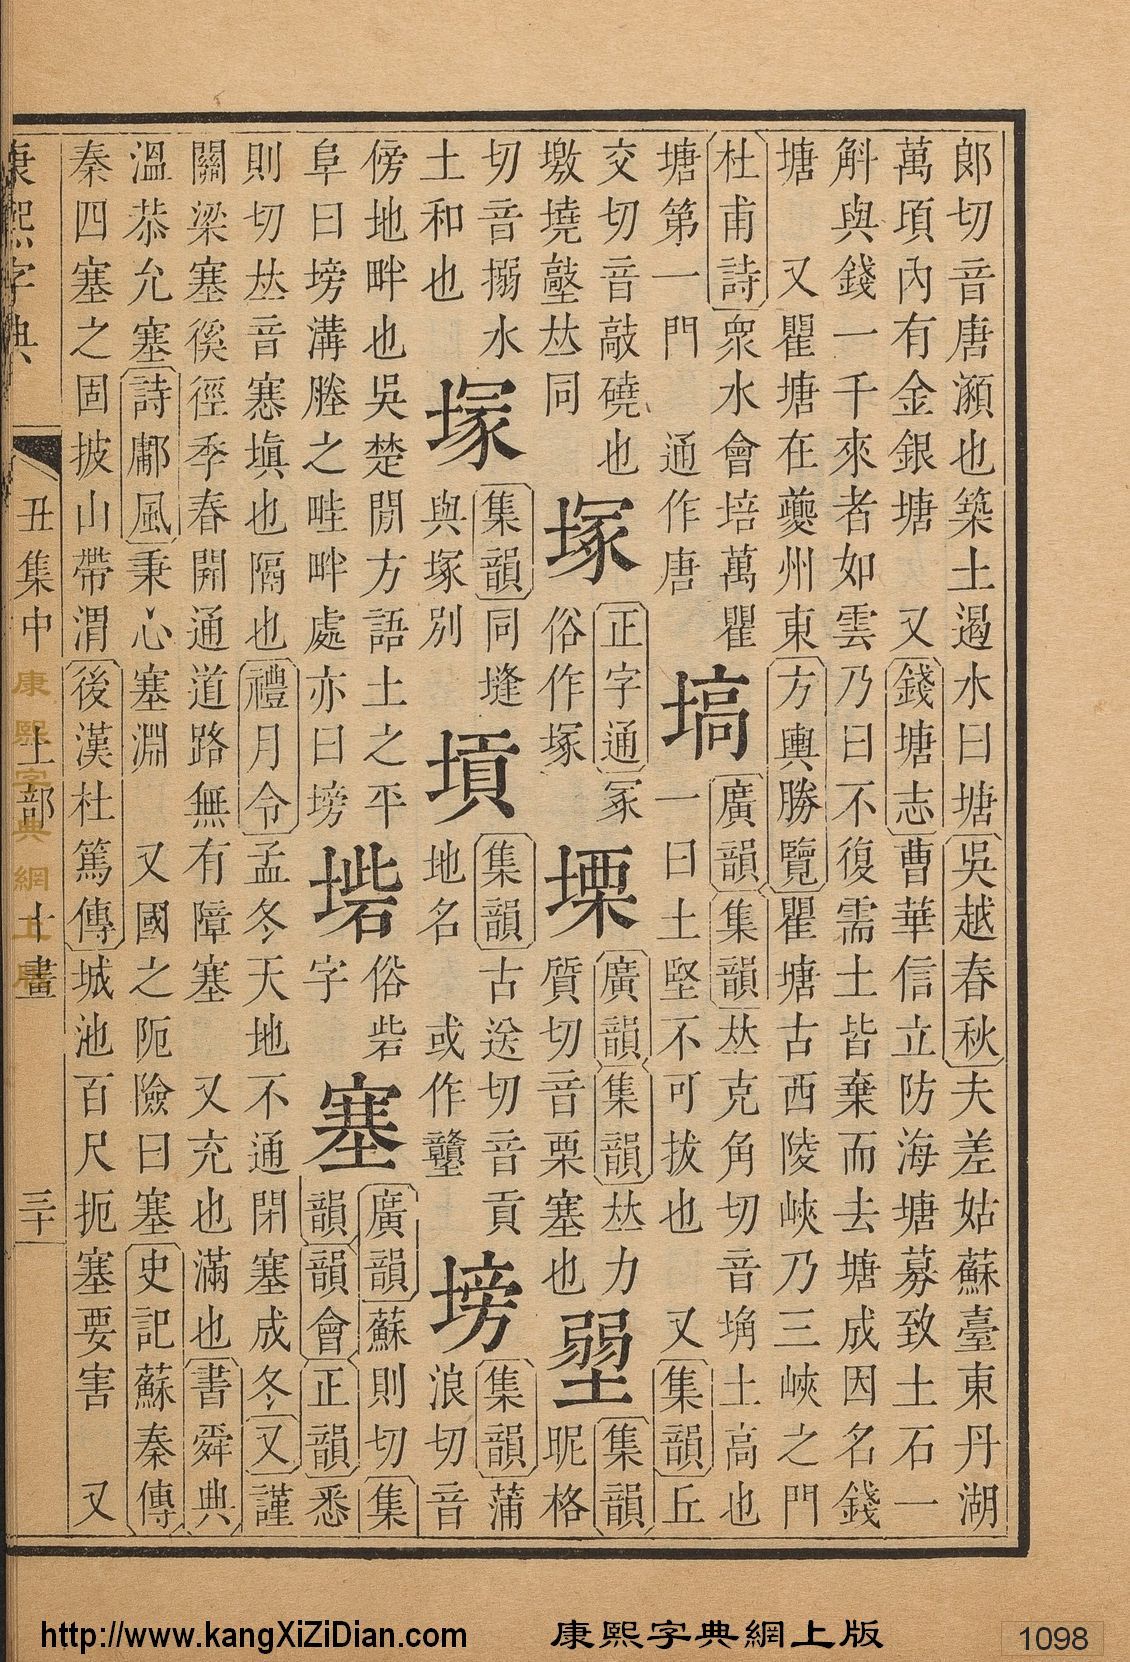 郞切音唐瀕也築土遏水曰塘吳越春秋夫差姑蘇臺東丹湖
萬頃內有金銀塘　又錢塘志曹華信立防海塘募致土石一
斛與錢一千來者如雲乃曰不復需土皆棄而去塘成因名錢
塘　又瞿塘在夔州東方輿勝覽瞿塘古西陵峽乃三峽之門
杜甫詩衆水會培萬瞿
塘第一門　通作唐
塙
廣韻集韻𠀤克角切音埆土高也
一曰土堅不可拔也　又集韻丘
交切音敲磽也
墽墝墼𠀤同
塚
正字通冢
俗作塚
塛
廣韻集韻𠀤力
質切音栗塞也
𡐦
集韻昵格
切音搦水
土和也
塜
集韻同㙡
與塚別
塡
集韻古送切音貢
地名　或作贛
塝
集韻蒲
浪切音
傍地畔也吳楚閒方語土之平
阜曰塝溝塍之畦畔處亦曰塝
㙗
俗砦
字
塞
廣韻蘇則切集
韻韻會正韻悉
則切𠀤音寨塡也隔也禮月令孟冬天地不通閉塞成冬又謹
關梁塞徯徑季春開通道路無有障塞　又充也滿也書舜典
溫恭允塞詩鄘風秉心塞淵　又國之阨險曰塞史記蘇秦傳
秦四塞之固披山帶渭後漢杜篤傳城池百尺扼塞要害　又
康熙字典　丑集中　土部　十畫　三十
康熙字典網上版
http://www.kangXiZiDian.com
康熙字典網上版
1098